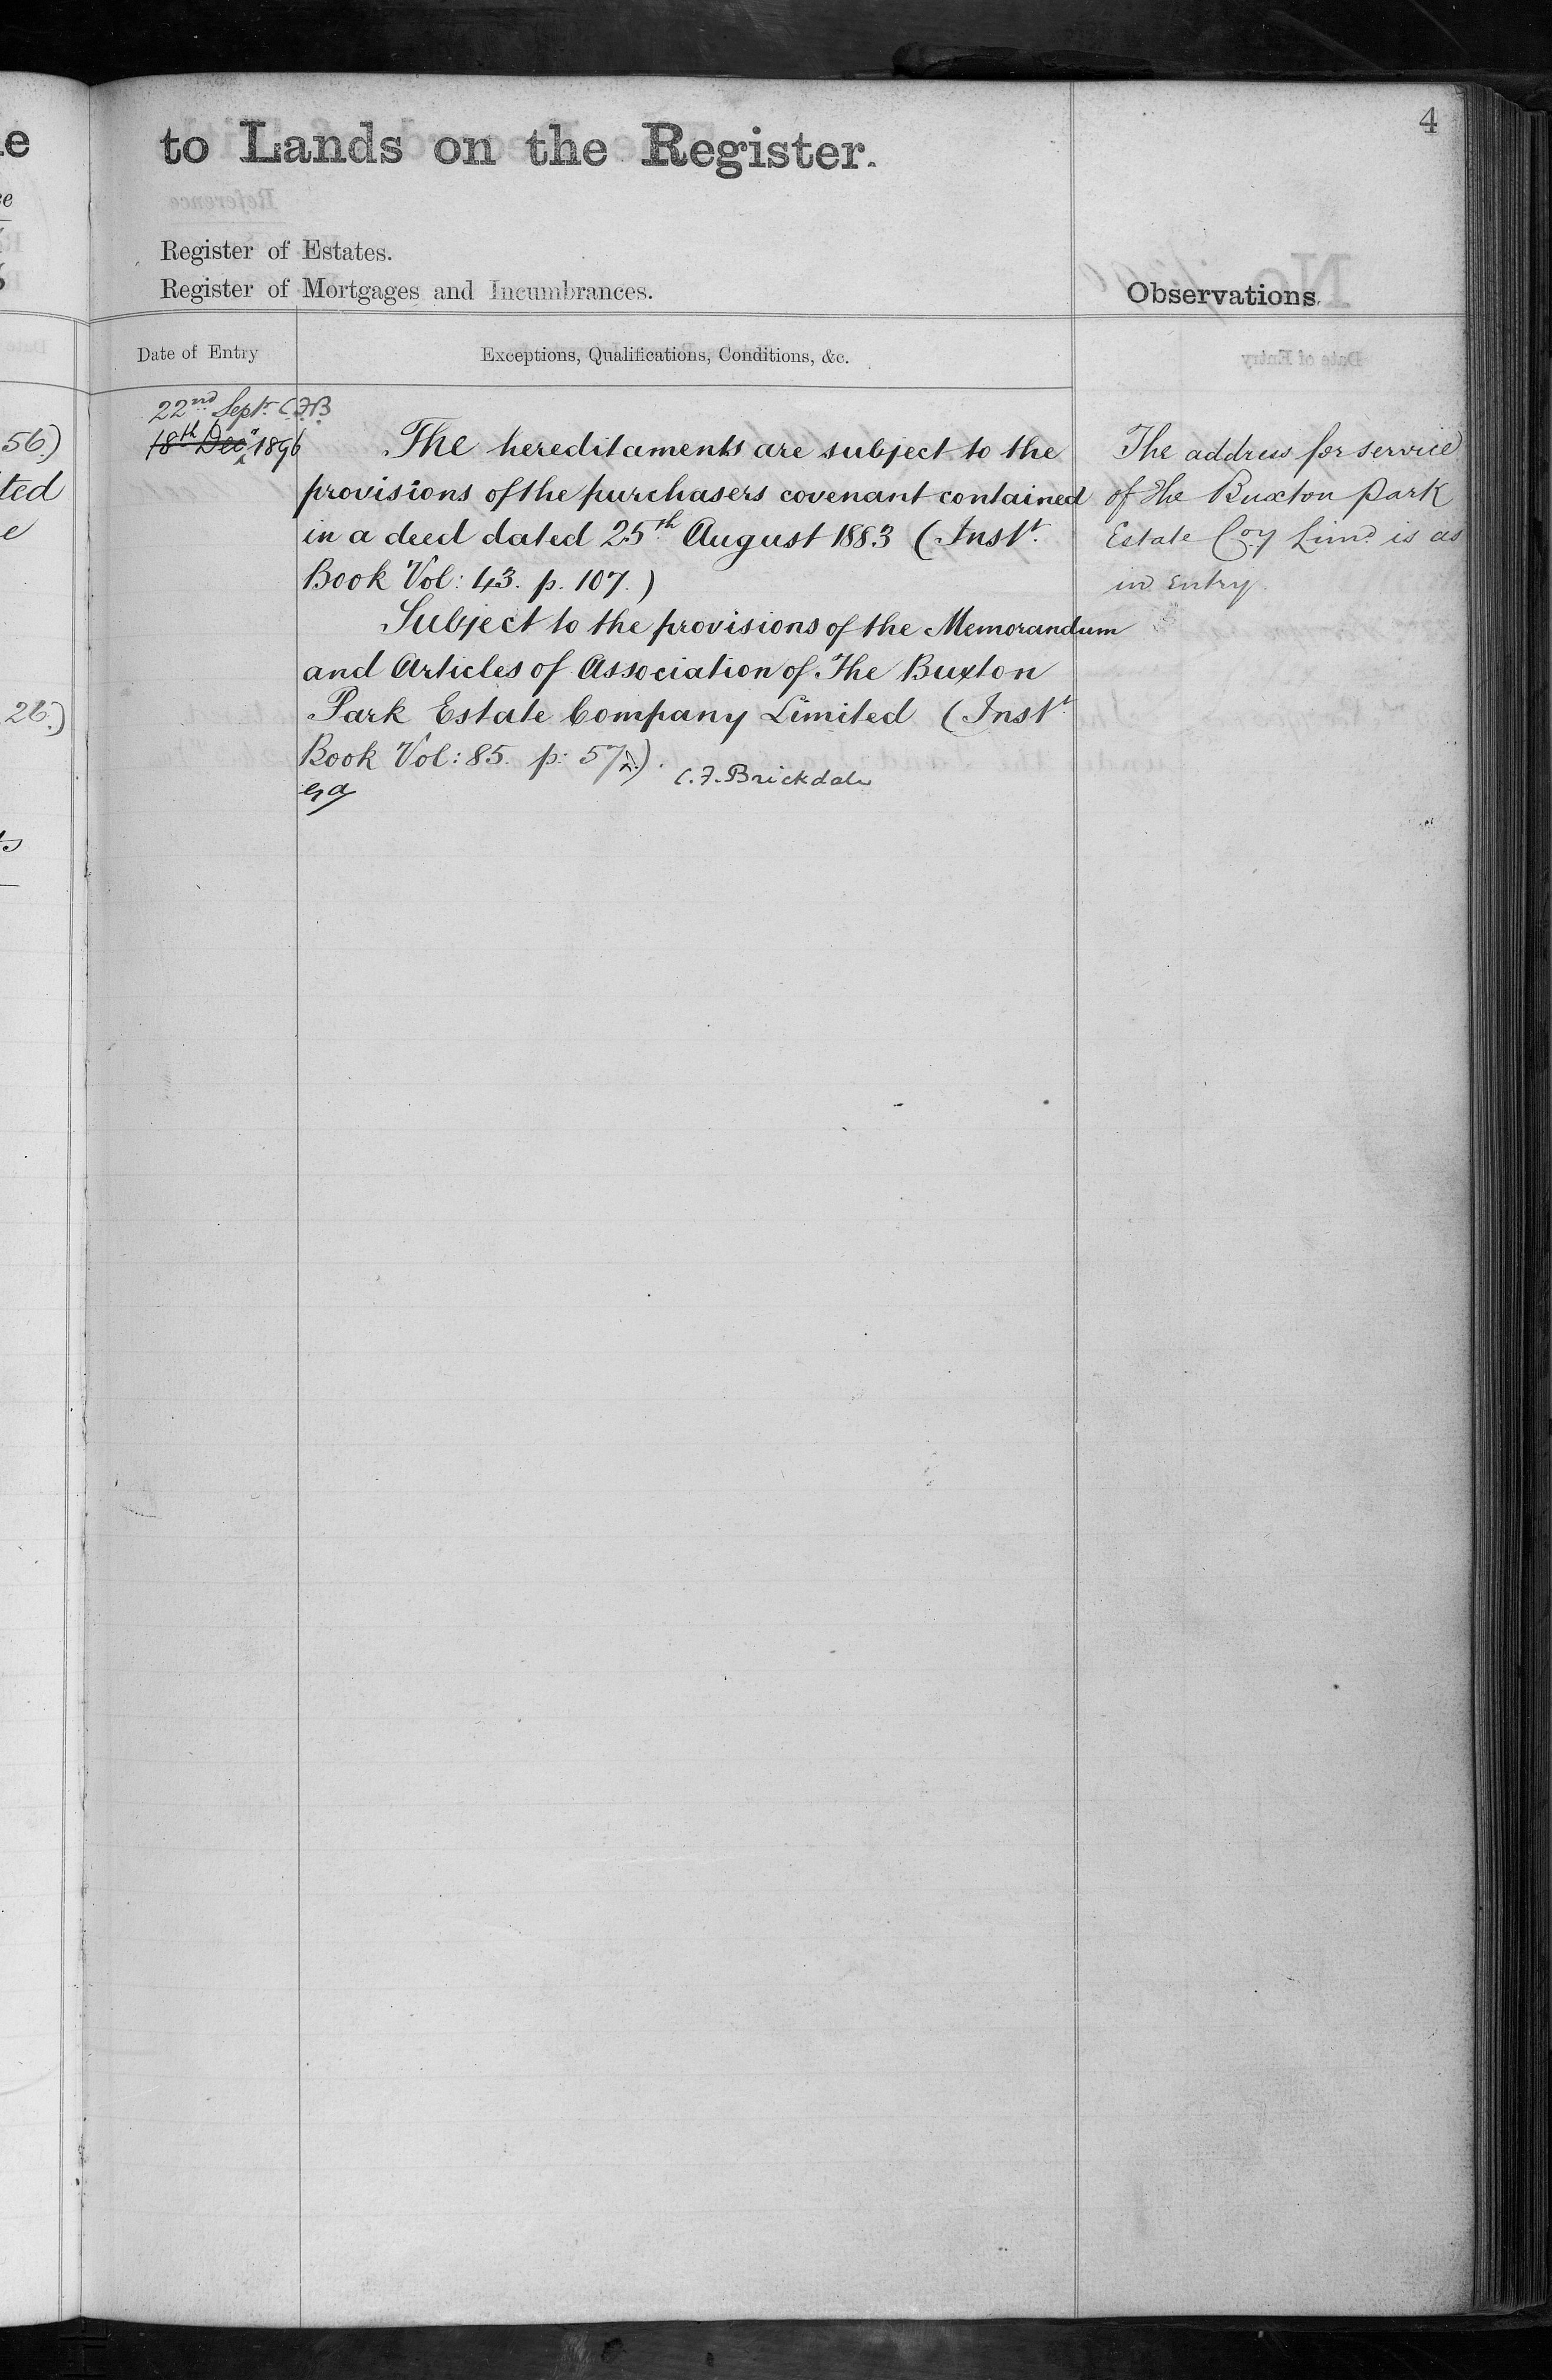 4
to Lands on the Register.
Register of Estates.
Register of Mortgages and Incumbrances.
Observations.
Date of Entry
Exceptions, Qualifications, Conditions, &c.
22nd Sept. C.F.B.
18th Decr 1896
The hereditaments are subject to the
provisions of the purchasers covenant contained
in a deed dated 25th August 1883 (Inst.
Book Vol: 43. p. 107.)
Subject to the provisions of the Memorandum
and Articles of Association of The Buxton
Park Estate Company Limited (Inst.
Book Vol: 85. p: 57).
C. F. Brickdale
The address for service
of the Buxton Park
Estate Coy Limd is as
in entry.
56)
ted
26.)